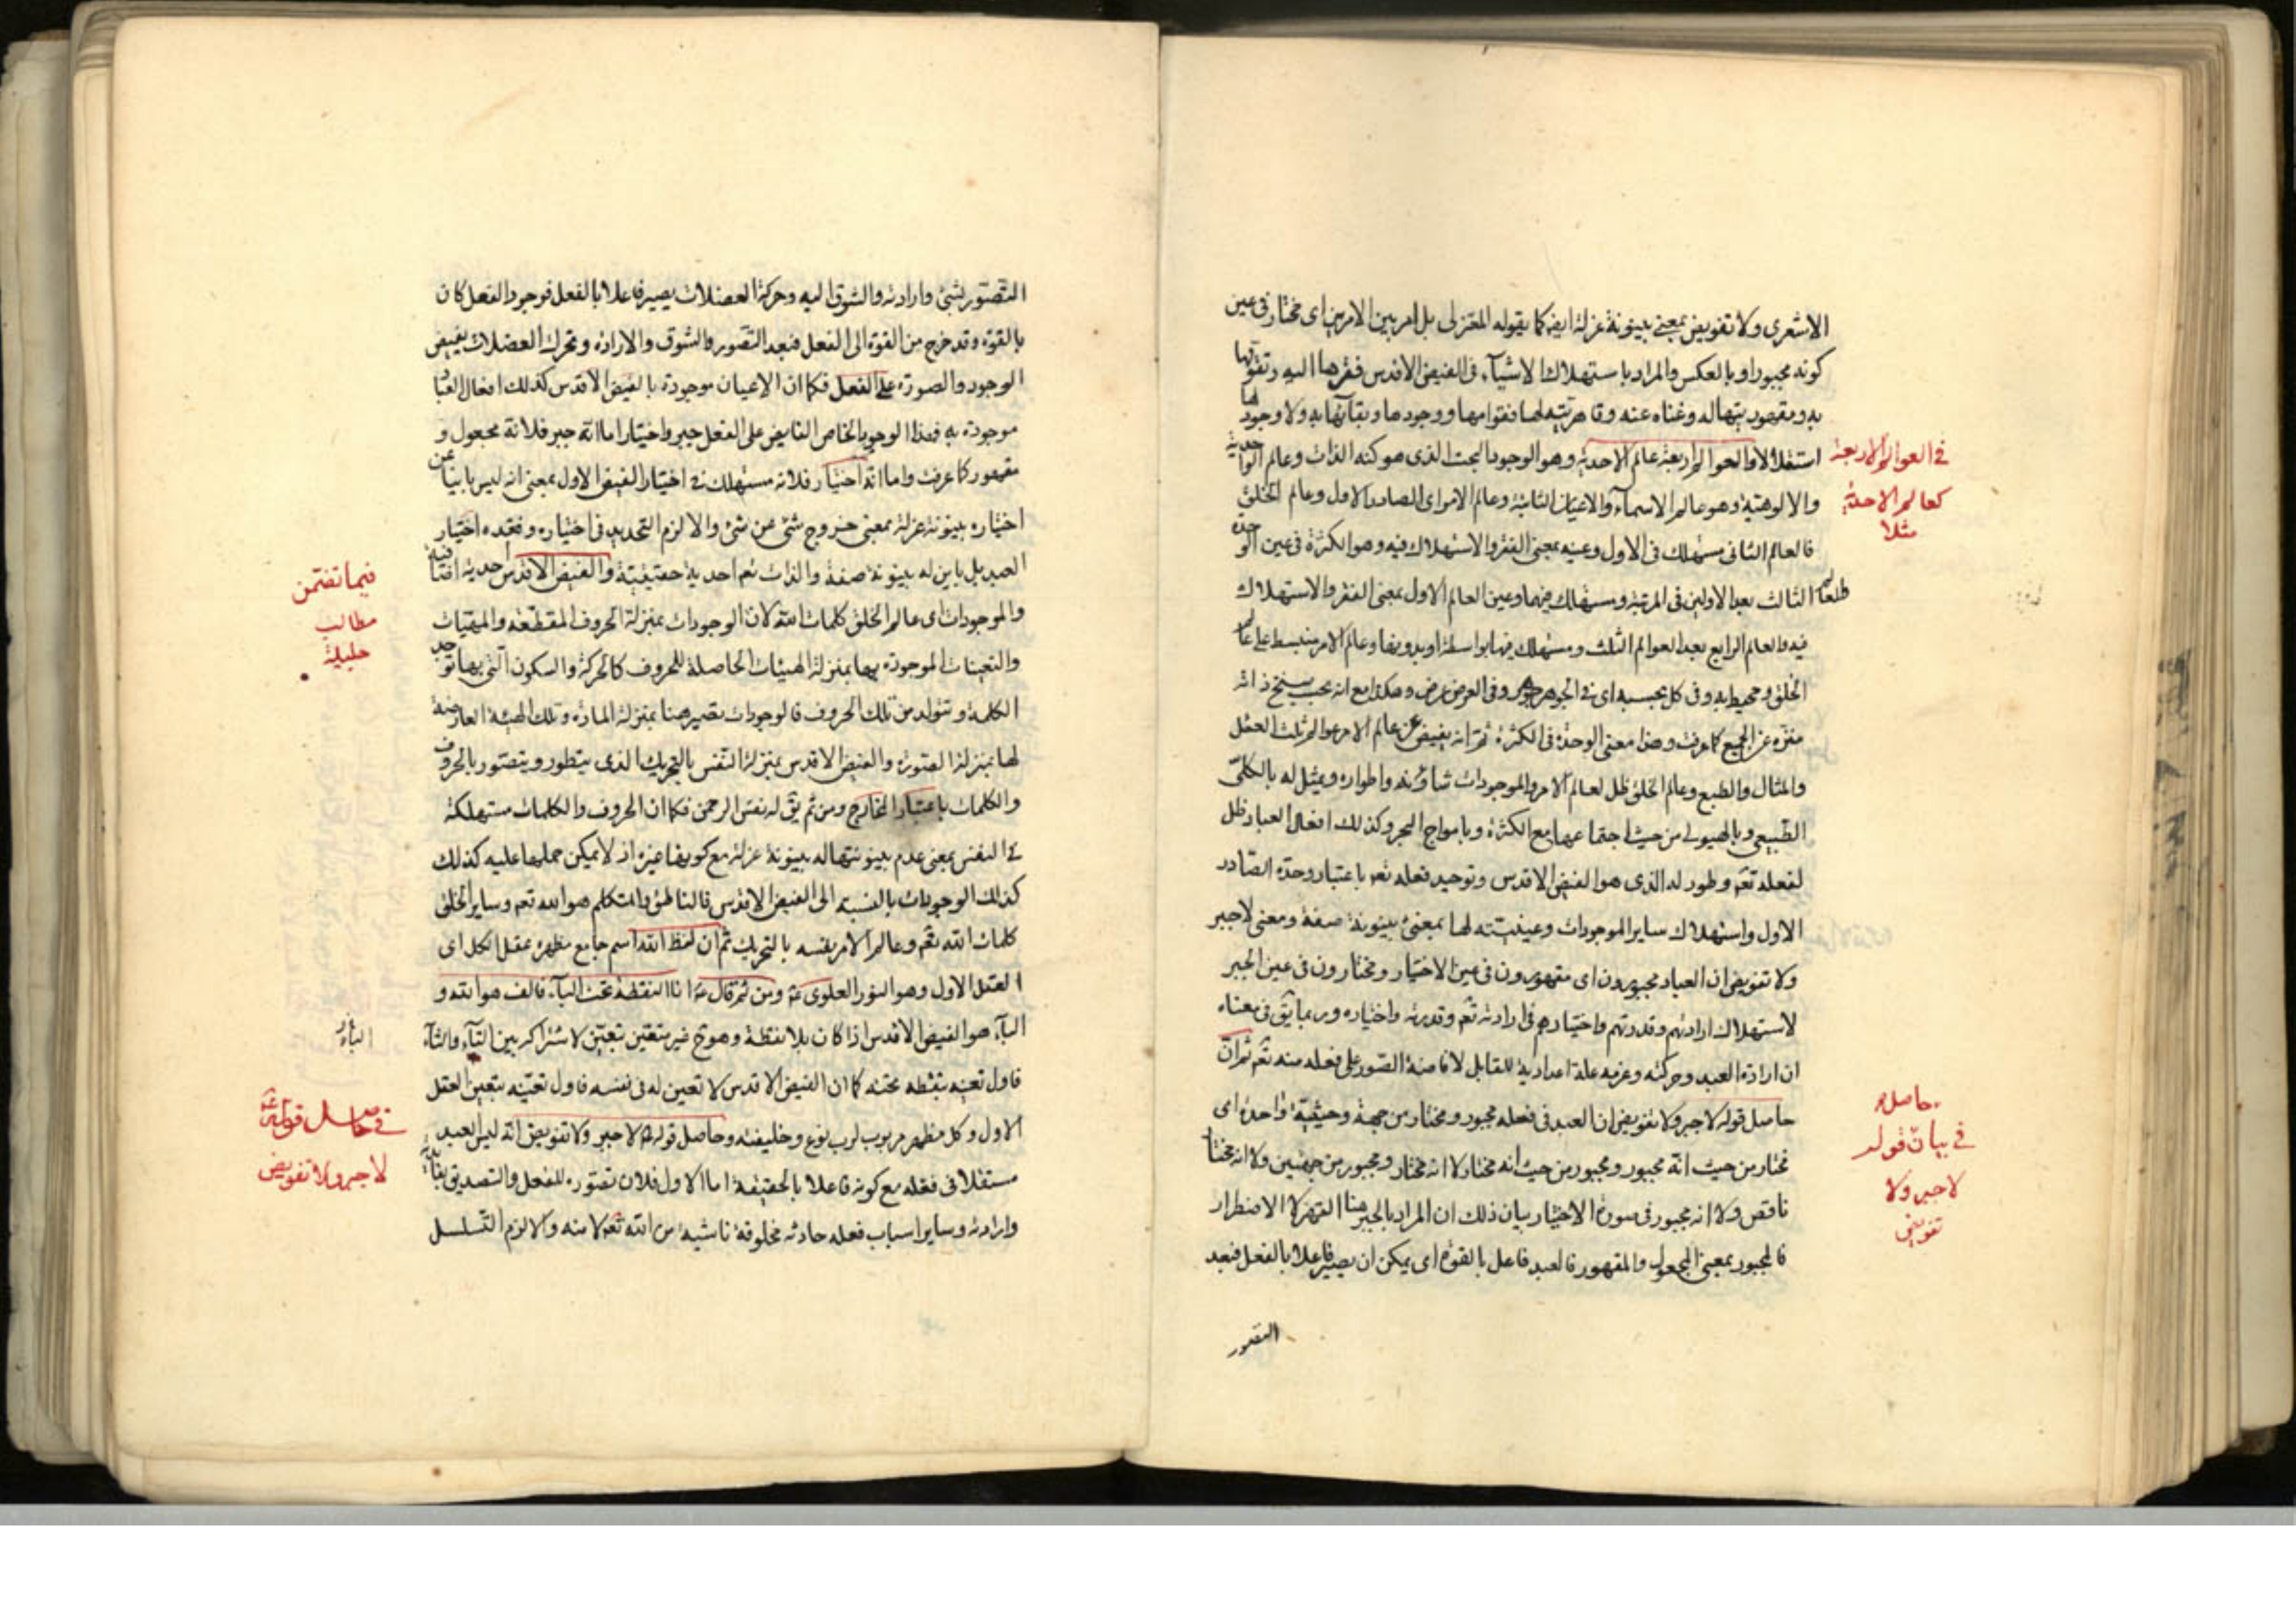 الاشعرى ولا تفويض بمعنى بينونة عزلة ايضا كما يقوله المعتزلى بل امر بين الامرين اى مختار فى عين
كونه مجبورا وبالعكس والمراد باستهلاك الاشيآء فى الفيض الاقدس فقرها اليه وتقومها
به ومقهوريتها له وغناه عنه وقاهريته لها فقوامها ووجودها وبقآئها به ولا وجود لها
استقلالا والعوالم اربعة عالم الاحدية وهو الوجود البحت الذى هو كنه الذات وعالم الواحدية
والالوهية وهو عالم الاسمآء والاعيان الثابتة وعالم الامر اى الصادر الاول وعالم الخلق
فالعالم الثانى مستهلك فى الاول وعينه بمعنى الفقر والاستهلاك فيه وهو الكثرة فى عين الوحدة
والعالم الثالث بعد الاولين فى المرتبة ومستهلك فيهما وعين العالم الاول بمعنى الفقر والاستهلاك
فيه والعالم الرابع بعد العوالم الثلث ومستهلك فيها بواسطة او بدونها وعالم الامر منبسط على عالم
الخلق ومحيط به وفى كل بحسبه اى فى الجوهر جوهر وفى العرض عرض وهكذا مع انه بحسب سنخ ذاته
منزه عن الجميع كما عرفت وهذا معنى الوحدة فى الكثرة ثم انه يفيض عن عالم الامر عوالم ثلث العقل
والمثال والطبع وعالم الخلق ظل لعالم الامر والموجودات شأونه واطواره ويمثل له بالكلى
الطبيعى وبالهيولى من حيث اجتماعها مع الكثرة وبامواج البحر وكذلك افعال العباد ظل
لفعله تعم وطور له الذى هو الفيض الاقدس وتوحيد فعله تعم باعتبار وحدة الصادر
الاول واستهلاك ساير الموجودات وعينيته لها بمعنى بينونة صفة ومعنى لا جبر
ولا تفويض ان العباد مجبورون اى مقهورون فى عين الاختيار ومختارون فى عين الجبر
لاستهلاك ارادتهم وقدرتهم واختيارهم فى ارادته تعم وقدرته واختياره وربما يق فى معناه
ان ارادة العبد وحركته وعزمه علة اعدادية للقابل لافاضة الصور على فعله منه تعم ثم ان
حاصل قوله لا جبر ولا تفويض ان العبد فى فعله مجبور ومختار من جهة وحيثية واحدة اى
مختار من حيث انه مجبور ومجبور من حيث انه مختار لا انه مختار ومجبور من جهتين ولا انه مختار
ناقص ولا انه مجبور فى صورة الاختيار بيان ذلك ان المراد بالجبر هنا القهر لا الاضطرار
فالمجبور بمعنى المجعول والمقهور فالعبد فاعل بالقوة اى يمكن ان يصير فاعلا بالفعل فبعد
التصور
فى العوالم الاربعة
كعالم الاحدية
مثلا
حاصله
فى بيان قوله
لا جبر ولا
تفويض
التصور لشئ وارادته والشوق اليه وحركة العضلات يصير فاعلا بالفعل فوجود الفعل كان
بالقوة وقد خرج من القوة الى الفعل فبعد التصور والشوق والارادة وتحرك العضلات يفيض
الوجود والصورة على الفعل فكما ان الاعيان موجودة بالفيض الاقدس كذلك افعال العباد
موجودة به فهذا الوجود الخاص الفايض على الفعل جبر واختيار اما انه جبر فلانه مجعول و
مقهور كما عرفت واما انه اختيار فلانه مستهلك فى اختيار الفيض الاول بمعنى انه ليس باينا عن
اختياره بينونة عزلة بمعنى خروج شئ عن شئ والا لزم التحديد فى اختياره وفقده اختيار
العبد بل باين له بينونة صفة والذات تعم احدية حقيقية والفيض الاقدس احديته
والموجودات اى عالم الخلق كلمات الله لان الوجودات بمنزلة الحروف المقطعة والمهيات
والتعينات الموجودة بها بمنزلة الهيئات الحاصلة للحروف كالحركة والسكون التى بها توجد
الكلمة وتتولد من تلك الحروف فالوجودات تصير هنا بمنزلة المادة وتلك الهيئة العارضة
لها بمنزلة الصورة والفيض الاقدس بمنزلة النفس بالتحريك الذى يتطور ويتصور بالحروف
والكلمات باعتبار المخارج ومن ثم يق له نفس الرحمن فكما ان الحروف والكلمات مستهلكة
فى النفس بمعنى عدم بينونتها له بينونة عزلة مع كونها غيره اذ لا يمكن حملها عليه كذلك
كذلك الوجودات بالنسبة الى الفيض الاقدس فالناطق والمتكلم هو الله تعم وساير الخلق
كلمات الله تعم وعالم الامر نفسه بالتحريك ثم ان لفظ الله اسم جامع مظهره عقل الكل اى
العقل الاول وهو النور العلوى ع ومن ثم قال ع انا النقطة تحت البآء فالف هو الله و
البآء هو الفيض الاقدس اذا كان بلا نقطة وهو ح غير متعين تعين لاشتراكه بين التآء والثآء
فاول تعينه بنقطة تحته كما ان الفيض الاقدس لا تعين له فى نفسه فاول تعينه بتعين العقل
الاول وكل مظهر مربوب لرب نوع وخليفته وحاصل قوله ع لا جبر ولا تفويض انه ليس العبد
مستقلا فى فعله مع كونه فاعلا بالحقيقة اما الاول فلان تصوره للفعل والتصديق بفايدته
وارادته وساير اسباب فعله حادثة مخلوقة ناشية من الله تعم لا منه والا لزم التسلسل
فيما تضمن
مطالب
جليلة
فى حاصل قوله ع
لا جبر ولا تفويض